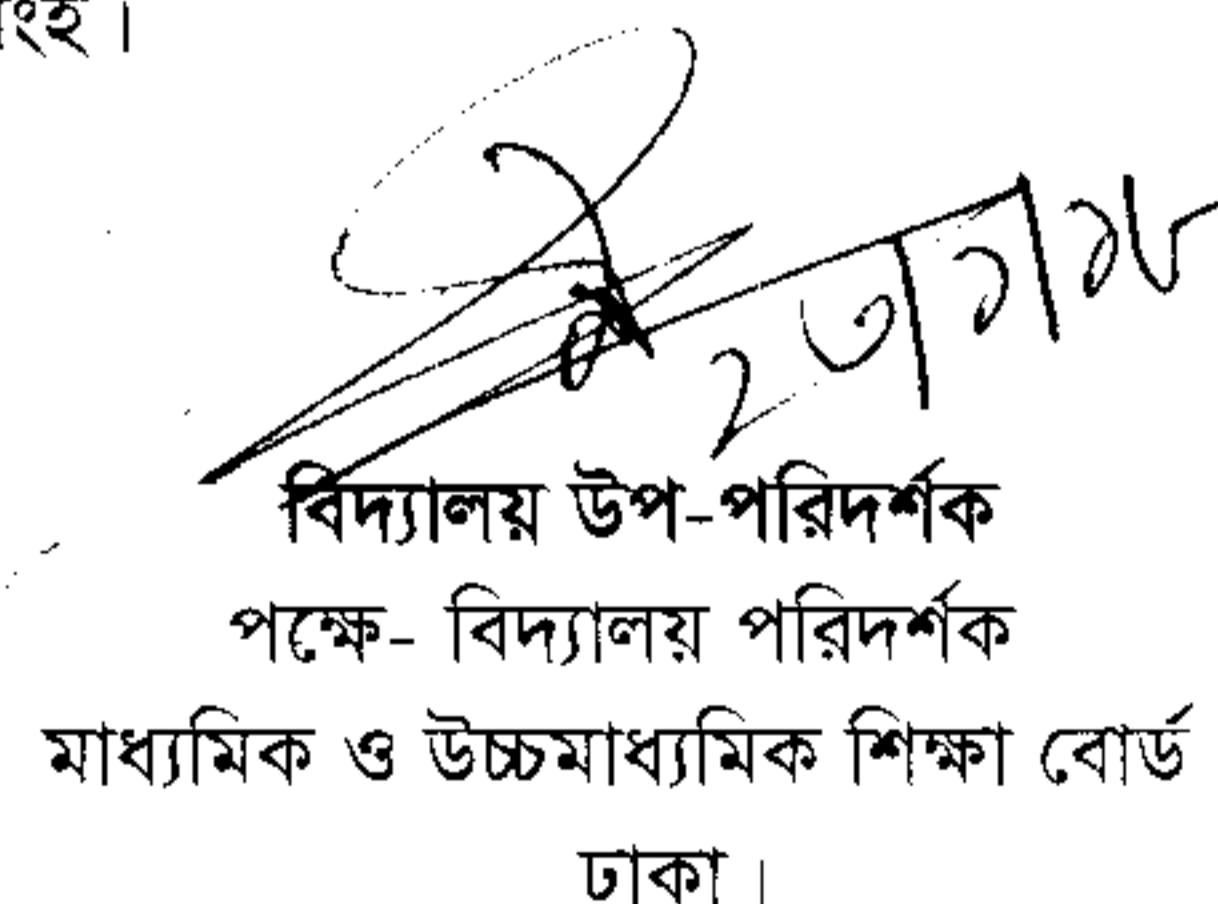 ংহ ।
বিদ্যালয় উপ-পরিদর্শক
পক্ষে- বিদ্যালয় পরিদর্শক
মাধ্যমিক ও উচ্চমাধ্যমিক শিক্ষা বোর্ড
ঢাকা ।